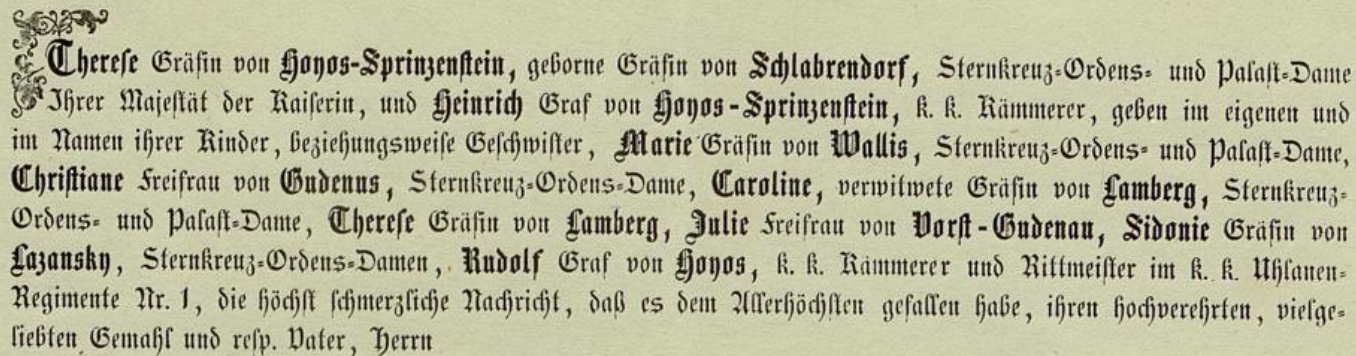 Therese Gräfin von Hoyos-Sprinzenstein, geborne Gräfin von Schlabrendorf, Sternkreuz-Ordens- und Palast-Dame
Ihrer Majestät der Kaiserin, und Heinrich Graf von Hoyos-Sprinzenstein, k. k. Kämmerer, geben im eigenen und
im Namen ihrer Kinder, beziehungsweise Geschwister, Marie Gräfin von Wallis, Sternkreuz-Ordens- und Palast-Dame,
Christiane Freifrau von Gudenus, Sternkreuz-Ordens-Dame, Caroline, verwitwete Gräfin von Lamberg, Sternkreuz-
Ordens- und Palast-Dame, Therese Gräfin von Lamberg, Julie Freifrau von Vorst-Gudenau, Sidonie Gräfin von
Lazansky, Sternkreuz-Ordens-Damen, Rudolf Graf von Hoyos, k. k. Kämmerer und Rittmeister im k. k. Uhlanen-
Regimente Nr. 1, die höchst schmerzliche Nachricht, daß es dem Allerhöchsten gefallen habe, ihren hochverehrten, vielge-
liebten Gemahl und resp. Vater, Herrn